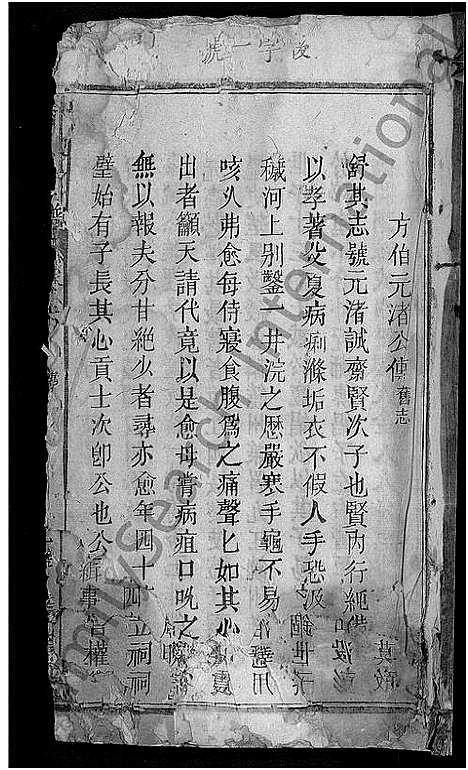 字一號
方伯元渚公傳 舊志
舒其志號元渚誠齋賢次子也賢內行純
以孝著父夏病痢滌垢衣不假人手恐汲
穢河上別鑿一井浣之歷嚴寒手龜不易
咳久弗愈每侍寢食腹為之痛聲匕如其
出者籲天請代竟以是愈母嘗病疽口吮之
無以報夫分甘絕少者尋亦愈年四十
璧始有子長其心貢士次卽公也公
FamilySearch International